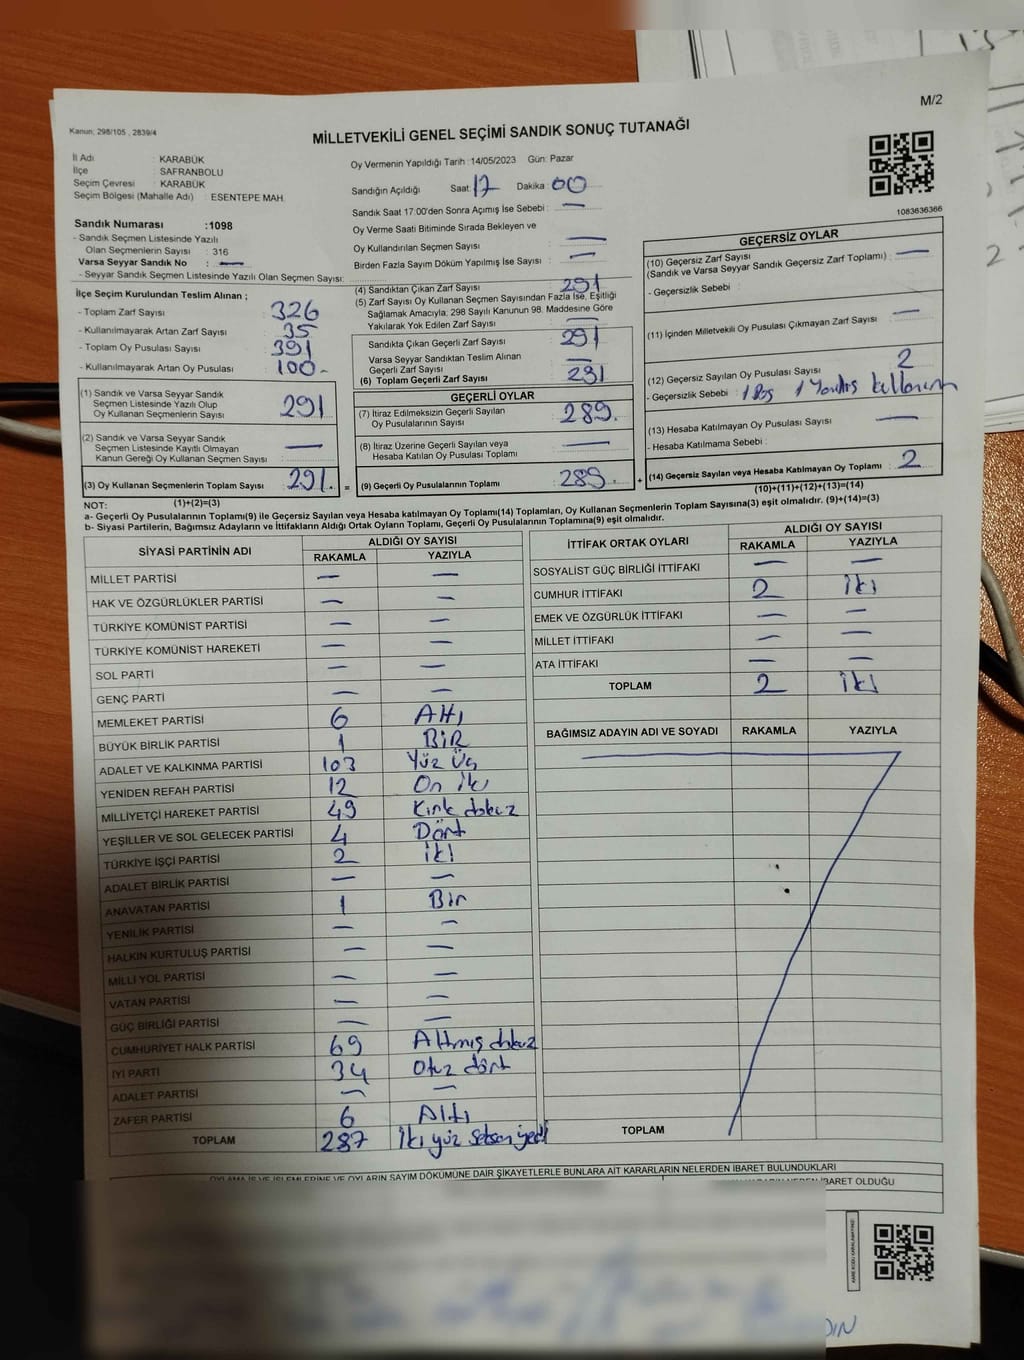 M/2
Kanun; 298/105 , 2839/4
MİLLETVEKİLİ GENEL SEÇİMİ SANDIK SONUÇ TUTANAĞI
İl Adı : KARABÜK
İlçe : SAFRANBOLU
Seçim Çevresi : KARABÜK
Seçim Bölgesi (Mahalle Adı) : ESENTEPE MAH.
Sandık Numarası :1098
- Sandık Seçmen Listesinde Yazılı
Olan Seçmenlerin Sayısı : 316
Varsa Seyyar Sandık No : —
- Seyyar Sandık Seçmen Listesinde Yazılı Olan Seçmen Sayısı:
Oy Vermenin Yapıldığı Tarih :14/05/2023 Gün: Pazar
Sandığın Açıldığı Saat: 17 Dakika : 00
Sandık Saat 17:00'den Sonra Açımış İse Sebebi : —
Oy Verme Saati Bitiminde Sırada Bekleyen ve
Oy Kullandırılan Seçmen Sayısı —
Birden Fazla Sayım Döküm Yapılmış İse Sayısı : —
1083636366
İlçe Seçim Kurulundan Teslim Alınan ;
- Toplam Zarf Sayısı : 326
- Kullanılmayarak Artan Zarf Sayısı : 35
- Toplam Oy Pusulası Sayısı : 391
- Kullanılmayarak Artan Oy Pusulası : 100-
(1) Sandık ve Varsa Seyyar Sandık
Seçmen Listesinde Yazılı Olup
Oy Kullanan Seçmenlerin Sayısı : 291
(2) Sandık ve Varsa Seyyar Sandık
Seçmen Listesinde Kayıtlı Olmayan
Kanun Gereği Oy Kullanan Seçmen Sayısı : —
(3) Oy Kullanan Seçmenlerin Toplam Sayısı : 291. =
(4) Sandıktan Çıkan Zarf Sayısı : 291
(5) Zarf Sayısı Oy Kullanan Seçmen Sayısından Fazla İse, Eşitliği
Sağlamak Amacıyla; 298 Sayılı Kanunun 98. Maddesine Göre
Yakılarak Yok Edilen Zarf Sayısı : —
Sandıkta Çıkan Geçerli Zarf Sayısı : 291
Varsa Seyyar Sandıktan Teslim Alınan
Geçerli Zarf Sayısı : —
(6) Toplam Geçerli Zarf Sayısı : 291
GEÇERLİ OYLAR
(7) İtiraz Edilmeksizin Geçerli Sayılan
Oy Pusulalarının Sayısı : 289.
(8) İtiraz Üzerine Geçerli Sayılan veya
Hesaba Katılan Oy Pusulası Toplamı : —
(9) Geçerli Oy Pusulalarının Toplamı : 289. +
GEÇERSİZ OYLAR
(10) Geçersiz Zarf Sayısı
(Sandık ve Varsa Seyyar Sandık Geçersiz Zarf Toplamı) : —
- Geçersizlik Sebebi :
(11) İçinden Milletvekili Oy Pusulası Çıkmayan Zarf Sayısı : —
(12) Geçersiz Sayılan Oy Pusulası Sayısı : 2
- Geçersizlik Sebebi : 1 Boş 1 Yanlış kullanım
(13) Hesaba Katılmayan Oy Pusulası Sayısı : —
- Hesaba Katılmama Sebebi :
(14) Geçersiz Sayılan veya Hesaba Katılmayan Oy Toplamı : 2
NOT: (1)+(2)=(3) (10)+(11)+(12)+(13)=(14)
a- Geçerli Oy Pusulalarının Toplamı(9) ile Geçersiz Sayılan veya Hesaba katılmayan Oy Toplamı(14) Toplamları, Oy Kullanan Seçmenlerin Toplam Sayısına(3) eşit olmalıdır. (9)+(14)=(3)
b- Siyasi Partilerin, Bağımsız Adayların ve İttifakların Aldığı Ortak Oyların Toplamı, Geçerli Oy Pusulalarının Toplamına(9) eşit olmalıdır.
SİYASİ PARTİNİN ADI ALDIĞI OY SAYISI
RAKAMLA YAZIYLA
MİLLET PARTİSİ — —
HAK VE ÖZGÜRLÜKLER PARTİSİ — —
TÜRKİYE KOMÜNİST PARTİSİ — —
TÜRKİYE KOMÜNİST HAREKETİ — —
SOL PARTİ — —
GENÇ PARTİ — —
MEMLEKET PARTİSİ 6 Altı
BÜYÜK BİRLİK PARTİSİ 1 BİR
ADALET VE KALKINMA PARTİSİ 103 Yüz Üç
YENİDEN REFAH PARTİSİ 12 On iki
MİLLİYETÇİ HAREKET PARTİSİ 49 Kırk dokuz
YEŞİLLER VE SOL GELECEK PARTİSİ 4 Dört
TÜRKİYE İŞÇİ PARTİSİ 2 iki
ADALET BİRLİK PARTİSİ — —
ANAVATAN PARTİSİ 1 Bir
YENİLİK PARTİSİ — —
HALKIN KURTULUŞ PARTİSİ — —
MİLLİ YOL PARTİSİ — —
VATAN PARTİSİ — —
GÜÇ BİRLİĞİ PARTİSİ — —
CUMHURİYET HALK PARTİSİ 69 Altmış dokuz
İYİ PARTİ 34 Otuz dört
ADALET PARTİSİ — —
ZAFER PARTİSİ 6 Altı
TOPLAM 287 İki yüz seksen yedi
İTTİFAK ORTAK OYLARI ALDIĞI OY SAYISI
RAKAMLA YAZIYLA
SOSYALİST GÜÇ BİRLİĞİ İTTİFAKI — —
CUMHUR İTTİFAKI 2 iki
EMEK VE ÖZGÜRLÜK İTTİFAKI — —
MİLLET İTTİFAKI — —
ATA İTTİFAKI — —
TOPLAM 2 iki
BAĞIMSIZ ADAYIN ADI VE SOYADI RAKAMLA YAZIYLA
TOPLAM
OYLAMA İŞ VE İŞLEMLERİNE VE OYLARIN SAYIM DÖKÜMÜNE DAİR ŞİKAYETLERLE BUNLARA AİT KARARLARIN NELERDEN İBARET BULUNDUKLARI
İBARET OLDUĞU